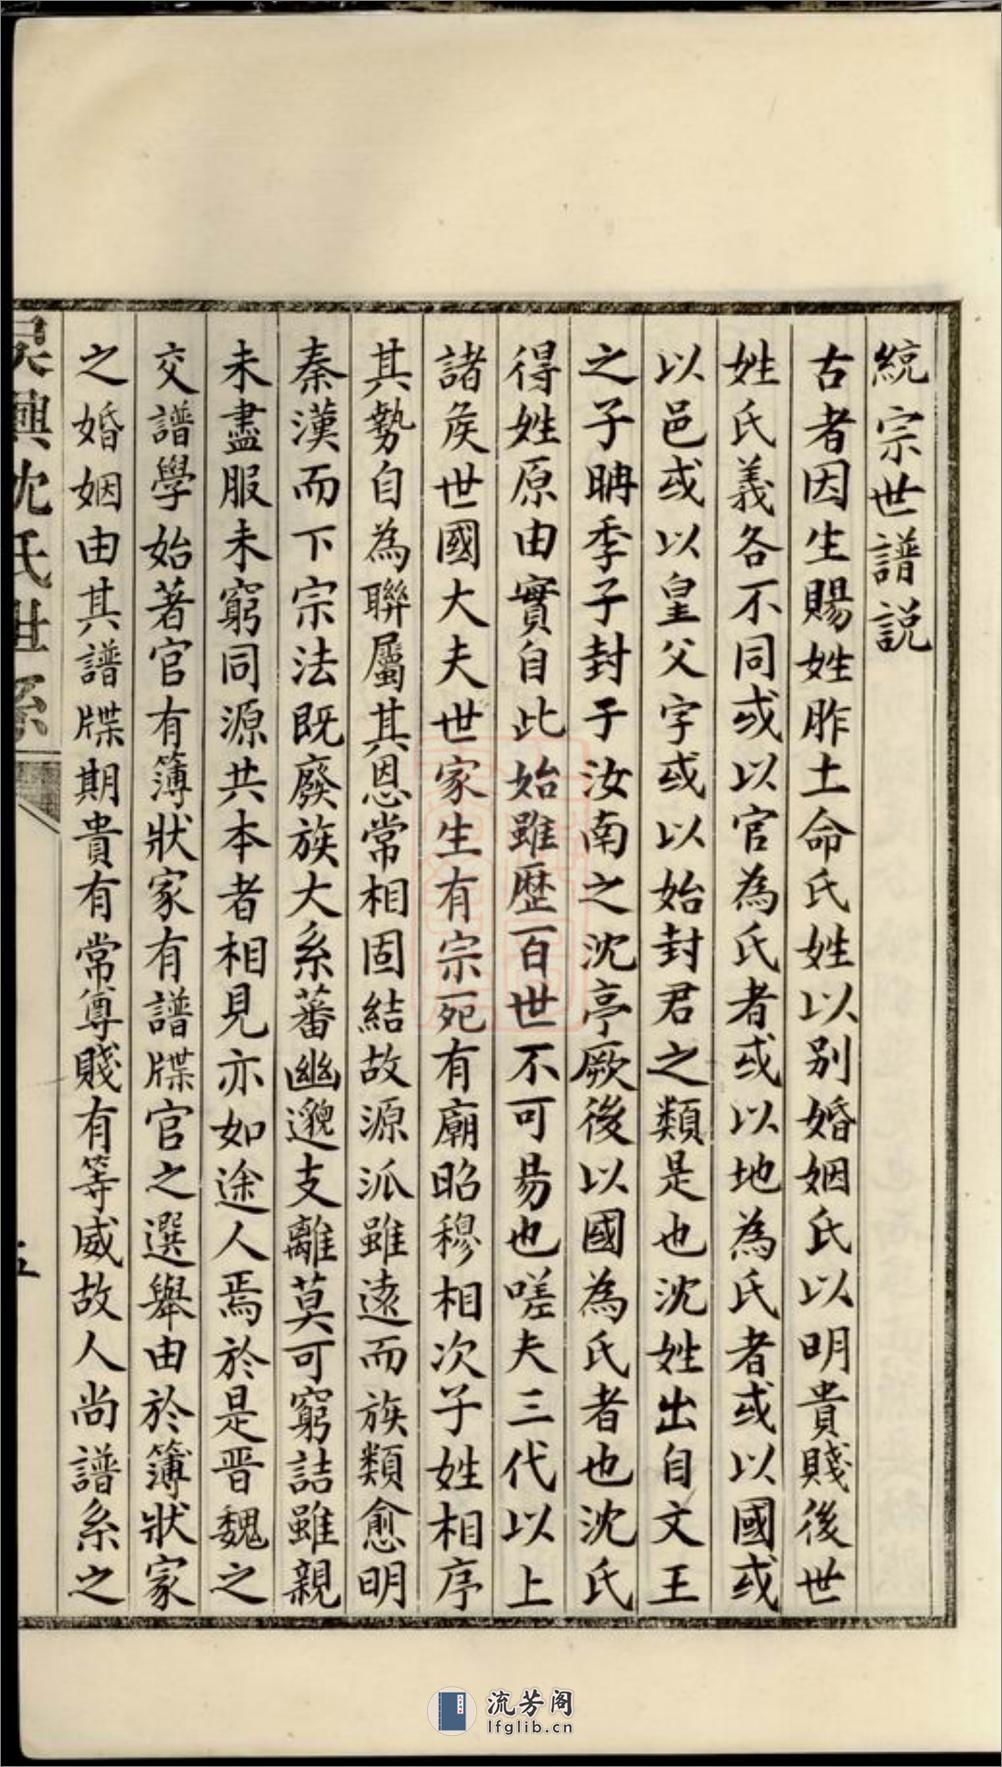 統宗世譜説
古者因生賜姓胙土命氏姓以别婚姻氏以明貴賤後世
姓氏義各不同或以官為氏者或以地為氏者或以國或
以邑或以皇父字或以始封君之類是也沈姓出自文王
之子聃季子封于汝南之沈亭厥後以國為氏者也沈氏
得姓原由實自此始雖歴百世不可易也嗟夫三代以上
諸侯世國大夫世家生有宗死有廟昭穆相次子姓相序
其勢自為聯屬其恩常相固結故源派雖遠而族類愈明
秦漢而下宗法既廢族大系蕃幽邈支離莫可窮詰雖親
未盡服未窮同源共本者相見亦如途人焉於是晋魏之
交譜學始著官有簿狀家有譜牒官之選舉由於簿狀家
之婚姻由其譜牒期貴有常尊賤有等威故人尚譜系之
吴興沈氏世系
五
流芳阁
lfglib.cn